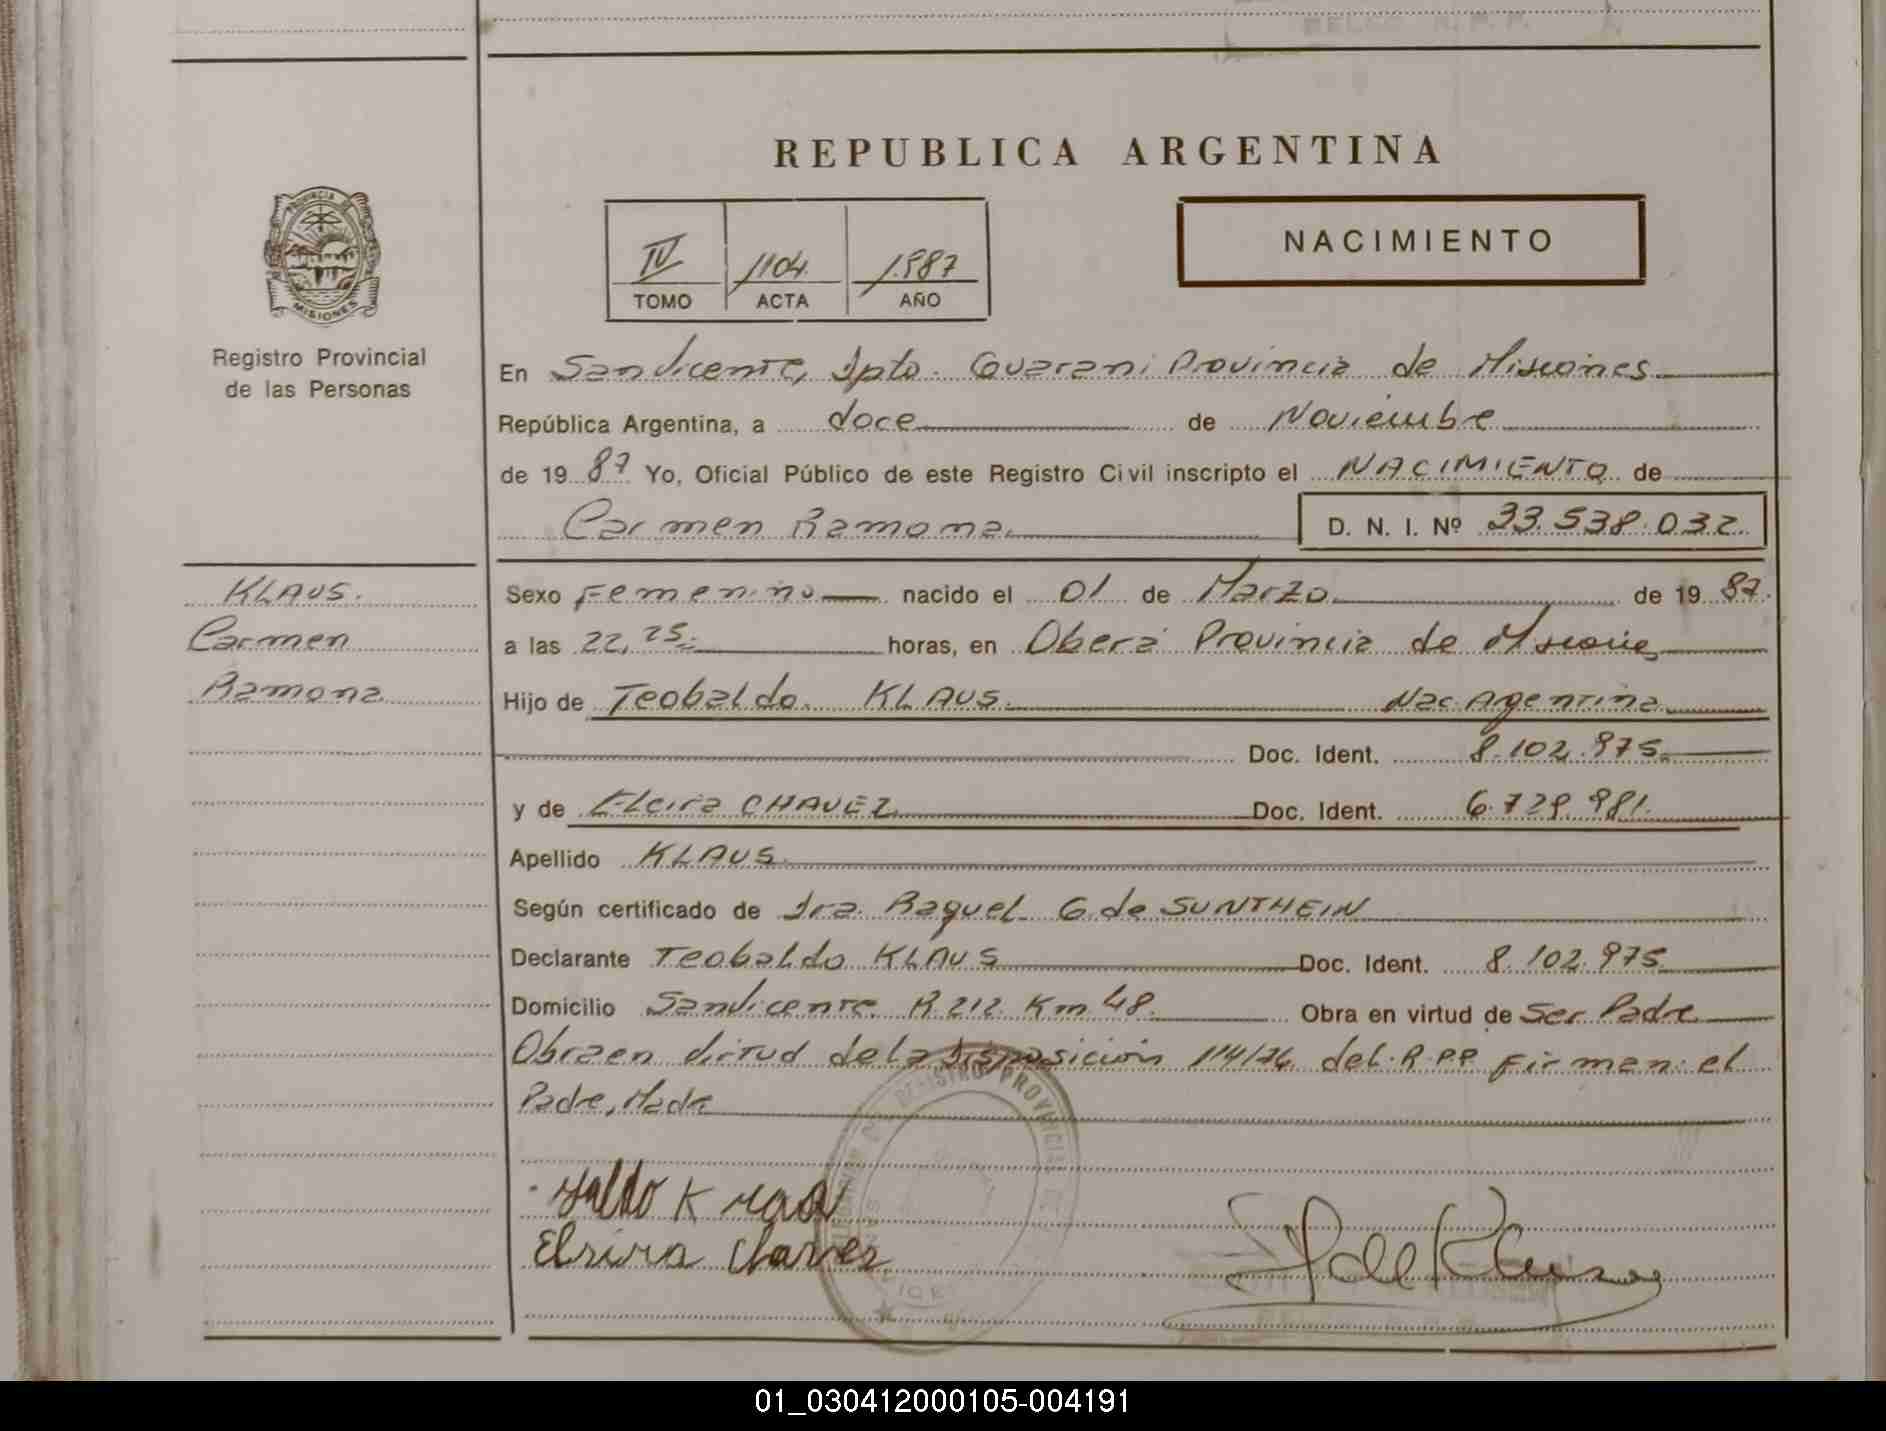 REPUBLICA ARGENTINA
NACIMIENTO
IV 1104 1987
TOMO ACTA AÑO
PROVINCIA DE MISIONES
Registro Provincial
de las Personas
En San Vicente, Dpto. Guarani Provincia de Misiones
República Argentina, a doce de Noviembre
de 19 87 Yo, Oficial Público de este Registro Civil inscripto el NACIMIENTO de
Carmen Ramona. D. N. I. Nº 33.538.032
KLAUS.
Carmen
Ramona
Sexo Femenino nacido el 01 de Marzo de 19 87.
a las 22,25 horas, en Oberá Provincia de Misiones
Hijo de Teobaldo KLAUS. Nac. Agentina
Doc. Ident. 8.102.975
y de Elcira CHAVEZ Doc. Ident. 6.729.981.
Apellido KLAUS
Según certificado de Dra. Raquel G. de SUNTHEIN
Declarante Teobaldo KLAUS Doc. Ident. 8.102.975
Domicilio San Vicente R 212 Km 48. Obra en virtud de Ser Padre
Obra en virtud de la Disposición 114/76 del R.P.P. Firman: el
Padre, Madre
Chavez
01_030412000105-004191